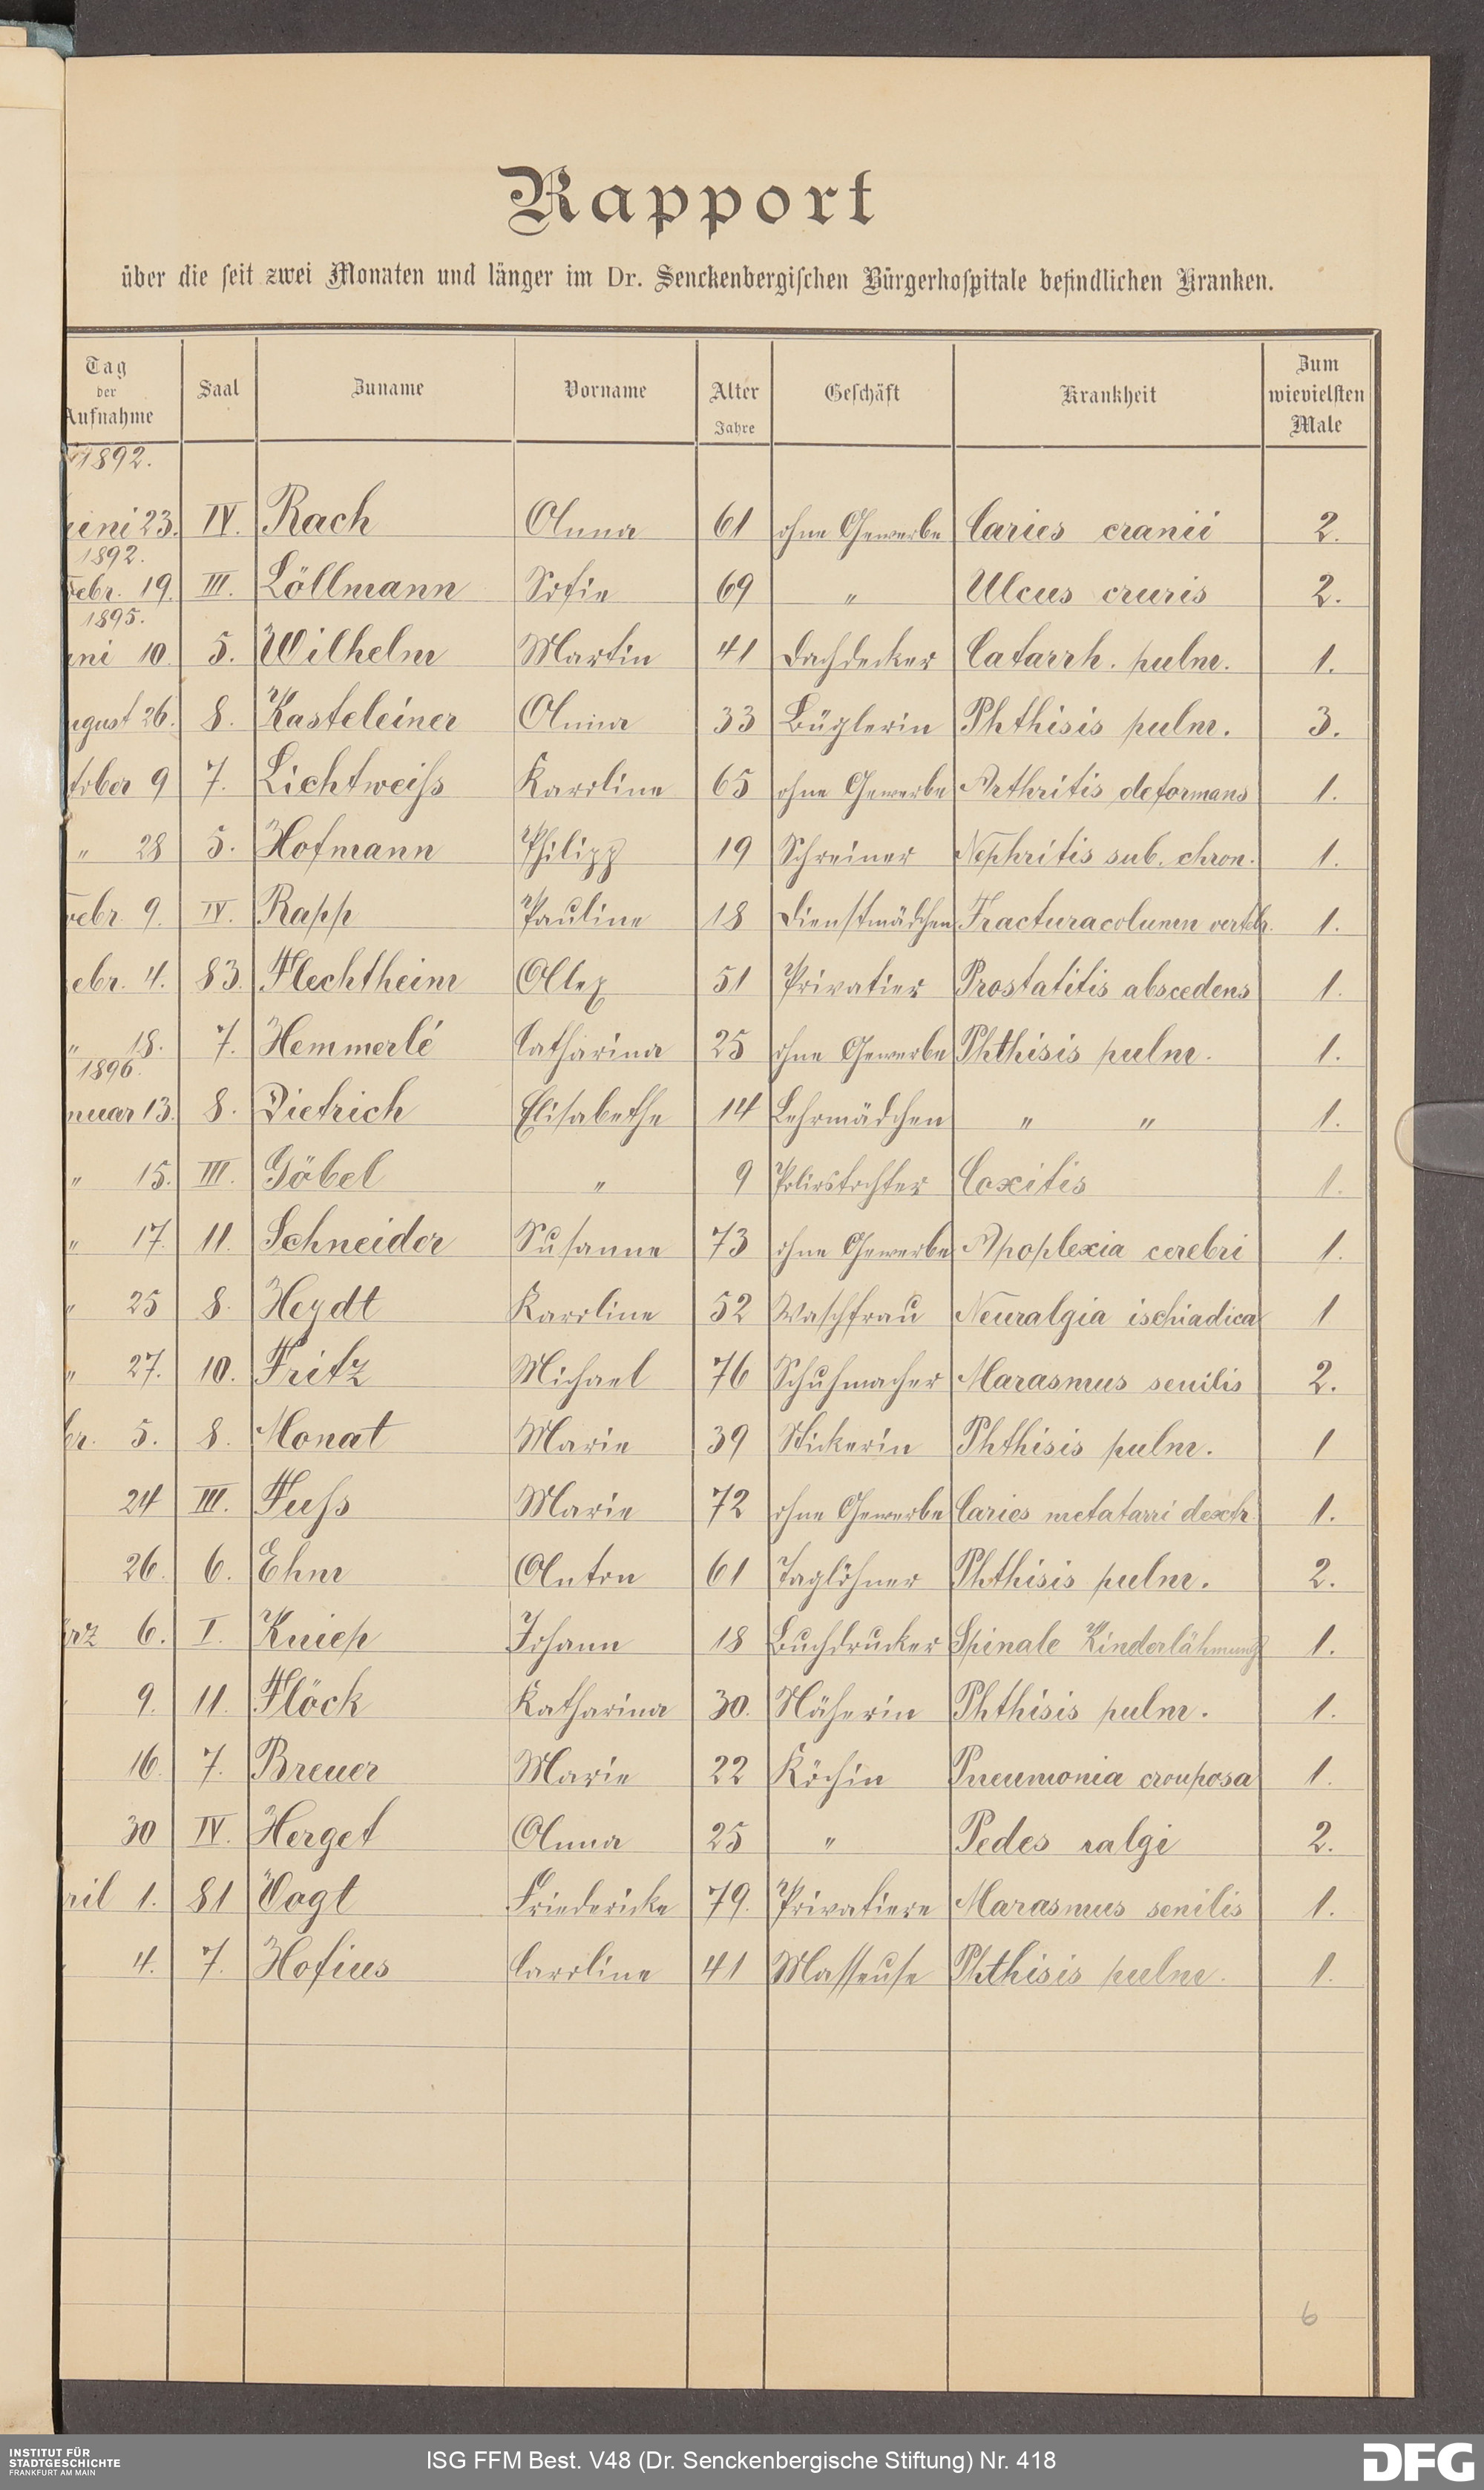 Rapport
über die seit zwei Monaten und länger im Dr. Senckenbergischen Bürgerhospitale befindlichen Kranken.
Tag der Aufnahme Saal Zuname Vorname Alter Jahre Geschäft Krankheit Zum wievielsten Male
1892.
uni 23. IV. Rach Anna 61 ohne Gewerbe Caries cranii 2.
1892.
Febr. 19. III. Löllmann Sofie 69 " Ulcus cruris 2.
1895.
uni 10. 5. Wilhelm Martin 41 Dachdecker Catarrh. pulm. 1.
ugust 26. 8. Kasteleiner Anna 33 Büglerin Phthisis pulm. 3.
tober 9 7. Lichtweiss Karoline 65 ohne Gewerbe Arthritis deformans 1.
" 28 5. Hofmann Philipp 19 Schreiner Nephritis sub. chron. 1.
ebr. 9. IV. Rapp Pauline 18 Dienstmädchen Fractura column vertebr. 1.
ebr. 4. 83. Flechtheim Alex 51 Privatier Prostatitis abscedens 1.
" 18. 7. Hemmerlé Catharina 25 ohne Gewerbe Phthisis pulm. 1.
1896.
nuar 13. 8. Dietrich Elisabethe 14 Lehrmädchen " " 1.
" 15. III. Göbel " 9 Polirstochter Coxitis 1.
" 17. 11. Schneider Susanne 73 ohne Gewerbe Apoplexia cerebri 1.
" 25 8. Heydt Karoline 52 Waschfrau Neuralgia ischiadica 1
" 27. 10. Fritz Michael 76 Schuhmacher Marasmus senilis 2.
br. 5. 8. Monat Marie 39 Stickerin Phthisis pulm. 1
24 III. Fuss Marie 72 ohne Gewerbe Caries metatarsi dextr. 1.
26. 6. Ehm Anton 61 Taglöhner Phthisis pulm. 2.
rz 6. I. Kniep Johann 18 Buchdrucker Spinale Kinderlähmung 1.
9. 11. Flöck Katharina 30. Näherin Phthisis pulm. 1.
16. 7. Breuer Marie 22 Köchin Pneumonia crouposa 1.
30 IV. Herget Anna 25 " Pedes valgi 2.
ril 1. 81 Vogt Friedericke 79. Privatiere Marasmus senilis 1.
4. 7. Hofius Caroline 41 Masseuse Phthisis pulm. 1.
6
INSTITUT FÜR
STADTGESCHICHTE
FRANKFURT AM MAIN
ISG FFM Best. V48 (Dr. Senckenbergische Stiftung) Nr. 418
DFG